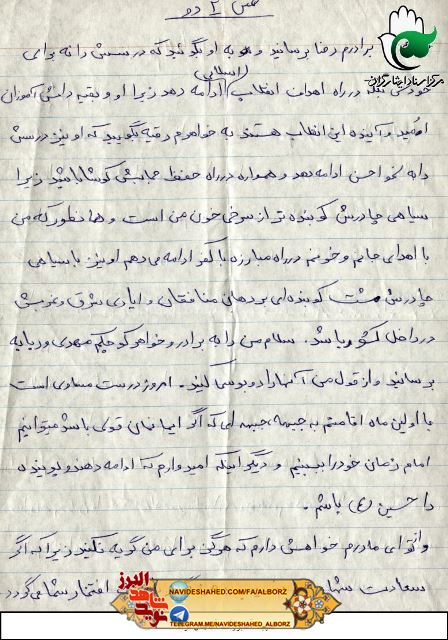 برادرم رضا برسانید و به او بگوئید که درسش را نه برای
مرکز اسناد ایثارگران
خودش بلکه در راه اهداف انقلاب اسلامی ادامه دهد زیرا او و بقیه دانش آموزان
امید و آینده این انقلاب هستند به خواهرم رقیه بگویید که او نیز درسش
را به نحو احسن ادامه دهد و همواره در راه حفظ حجابش کوشا باشد زیرا
سیاهی چادرش کوبنده تر از سرخی خون من است و همانطور که من
با اهدای جانم و خونم در راه مبارزه با کفر ادامه می دهم او نیز با سیاهی
چادرش مشت کوبنده ای بر دهان منافقان و ایادی شرق و غربش
در داخل کشور باشد. سلام من را به برادر و خواهر کوچکم مهدی و ربابه
برسانید و از قول من آنها را ببوسید. امروز درست مساوی است
با اولین ماه اقامتم به جبهه، جبهه ای که اگر ایمانمان قوی باشد میتوانیم
امام زمان خود را ببینیم و دیگر اینکه امیدوارم که ادامه دهنده و پوینده
راه حسین (ع) باشم.
و تو ای مادرم خواهش دارم که هرگز برای من گریه نکنید زیرا که اگر
سعادت شهادت
افتخار شما می گردد
نوید شاهد البرز
NAVIDESHAHED.COM/FA/ALBORZ
TELEGRAM.ME/NAVIDESHAHED_ALBORZ